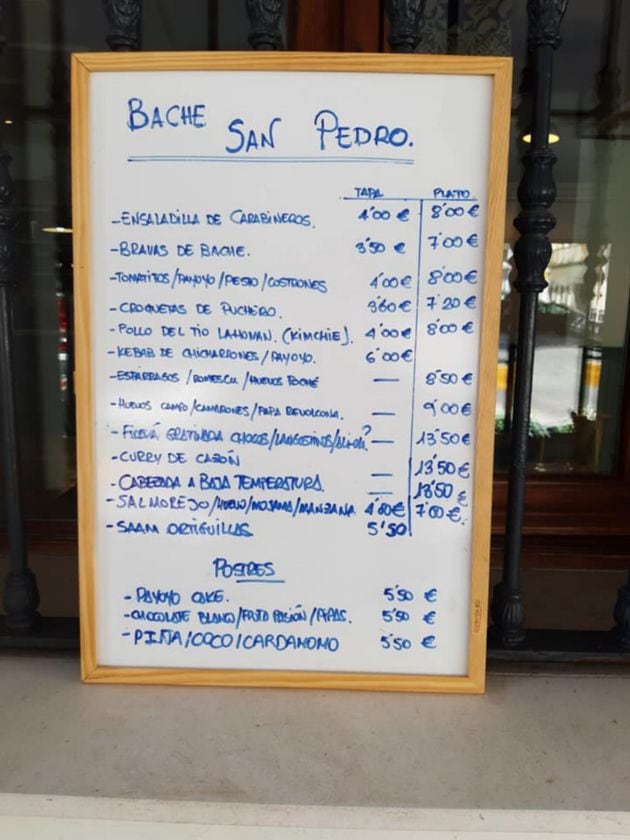 BACHE SAN PEDRO.
TAPA PLATO
-ENSALADILLA DE CARABINEROS. 4'00 € 8'00 €
-BRAVAS DE BACHE. 3'50 € 7'00 €
-TOMATITOS/PAYOYO/PESTO/COSTRONES 4'00 € 8'00 €
-CROQUETAS DE PUCHERO. 3'60 € 7'20 €
-POLLO DEL TIO LAHONAN. (KIMCHIE). 4'00 € 8'00 €
-KEBAB DE CHICHARRONES/PAYOYO. 6'00 €
-ESPÁRRAGOS/ROMESCU/HUEVOS POCHÉ — 8'50 €
-HUEVOS CAMPO/CAMARONES/PAPA REVOLCONA. — 9'00 €
-FIDEUÁ GRATINADA CHOCOS/LANGOSTINOS/ — 13'50 €
-CURRY DE CAZÓN — 13'50 €
-CABEZADA A BAJA TEMPERATURA. — 13'50 €
-SALMOREJO/HUEVO/MOJAMA/MANZANA 4'00 € 7'00 €.
-SAAM ORTIGUILLAS 5'50
POSTRES
-PAYOYO CAKE. 5'50 €
-CHOCOLATE BLANCO/FRUTO PASIÓN/PIPAS. 5'50 €
-PIÑA/COCO/CARDAMOMO 5'50 €